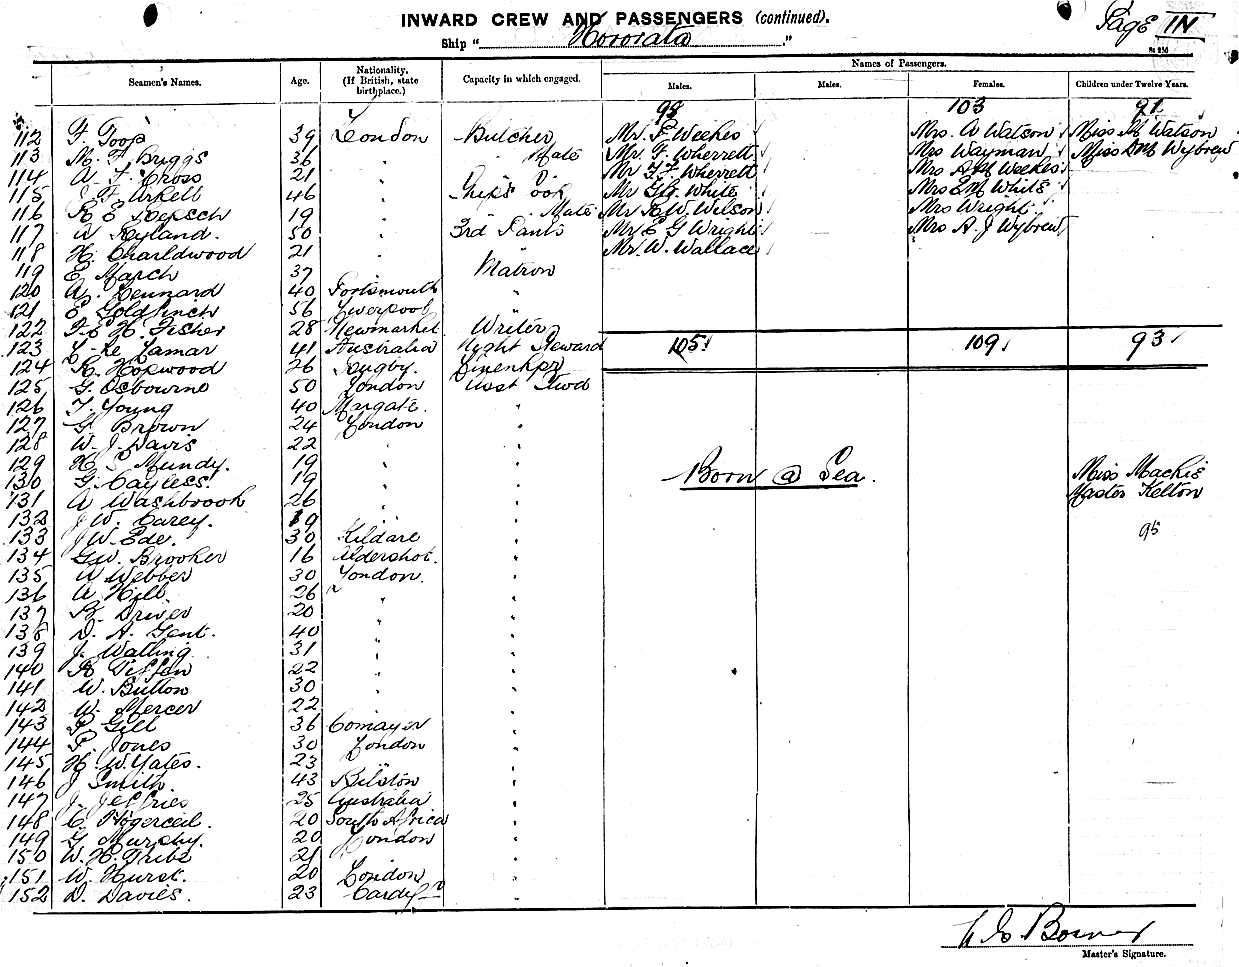 INWARD CREW AND PASSENGERS (continued).
Page IN
Ship "Hororata"
Names of Passengers.
Seamen's Names. Age. Nationality. (If British, state birthplace.) Capacity in which engaged. Males. Males. Females. Children under Twelve Years.
98 103 91
112 F. Toop 39 London Butcher Mr. F Weekes Mrs. W Watson Miss M Watson
113 M. F. Briggs 36 " " Mate Mr. F. Wherrett Mrs Wayman Miss D M Wybrew
114 A. F. Cross 21 " Mr F. F. Wherrett Mrs A M Weekes
115 F Urkell 46 " Ship's Cook Mr Geo. White Mrs E M White
116 R E Roepsch 19 " " Mate Mr R W. Wilson Mrs Wright
117 W Ryland. 50 " 3rd Pants Mr. E G Wright Mrs A. J Wybrew
118 H. Charldwood 21 " " Mr. W. Wallace
119 E. March 37 " Matron
120 A. Lennard 40 Portsmouth "
121 E Goldfinch 56 Liverpool "
122 F. E. H. Fisher 28 Newmarket Writer
123 Le Lamar 41 Australia Night Steward 105 109 93
124 R Hopwood 26 Rugby. Linenkpr
125 G Osbourne 50 London Asst Stwd
126 F. Young 40 Margate. "
127 G Brown 24 London "
128 W. J. Davis 22 " "
129 H S Mundy. 19 " "
Born @ Sea. Miss Mackie
130 G. Cayless. 19 " "
Master Kelton
131 A Washbrook 26 " "
132 J W. Carey. 19 " "
133 J W. Ede. 30 Kildare "
95
134 G W. Brooker 16 Aldershot. "
135 W Webber 30 London. "
136 A Hill 26 " "
137 F. Driver 20 " "
138 D. A. Gent. 40 " "
139 J. Watling 31 " "
140 R Tiffen 22 " "
141 W. Button 30 " "
142 W. Mercer 22 " "
143 P Gill 36 "
144 F. Jones 30 London "
145 H. W. Yates. 23 " "
146 J Smith. 43 Bilston "
147 J. Jeffries 25 Australia "
148 C. Hogerceil. 20 South Africa "
149 G Murphy. 20 London "
150 W. H. Tribe 21 "
151 W. Hurst. 20 London "
152 D. Davies. 23 Cardiff "
Master's Signature.